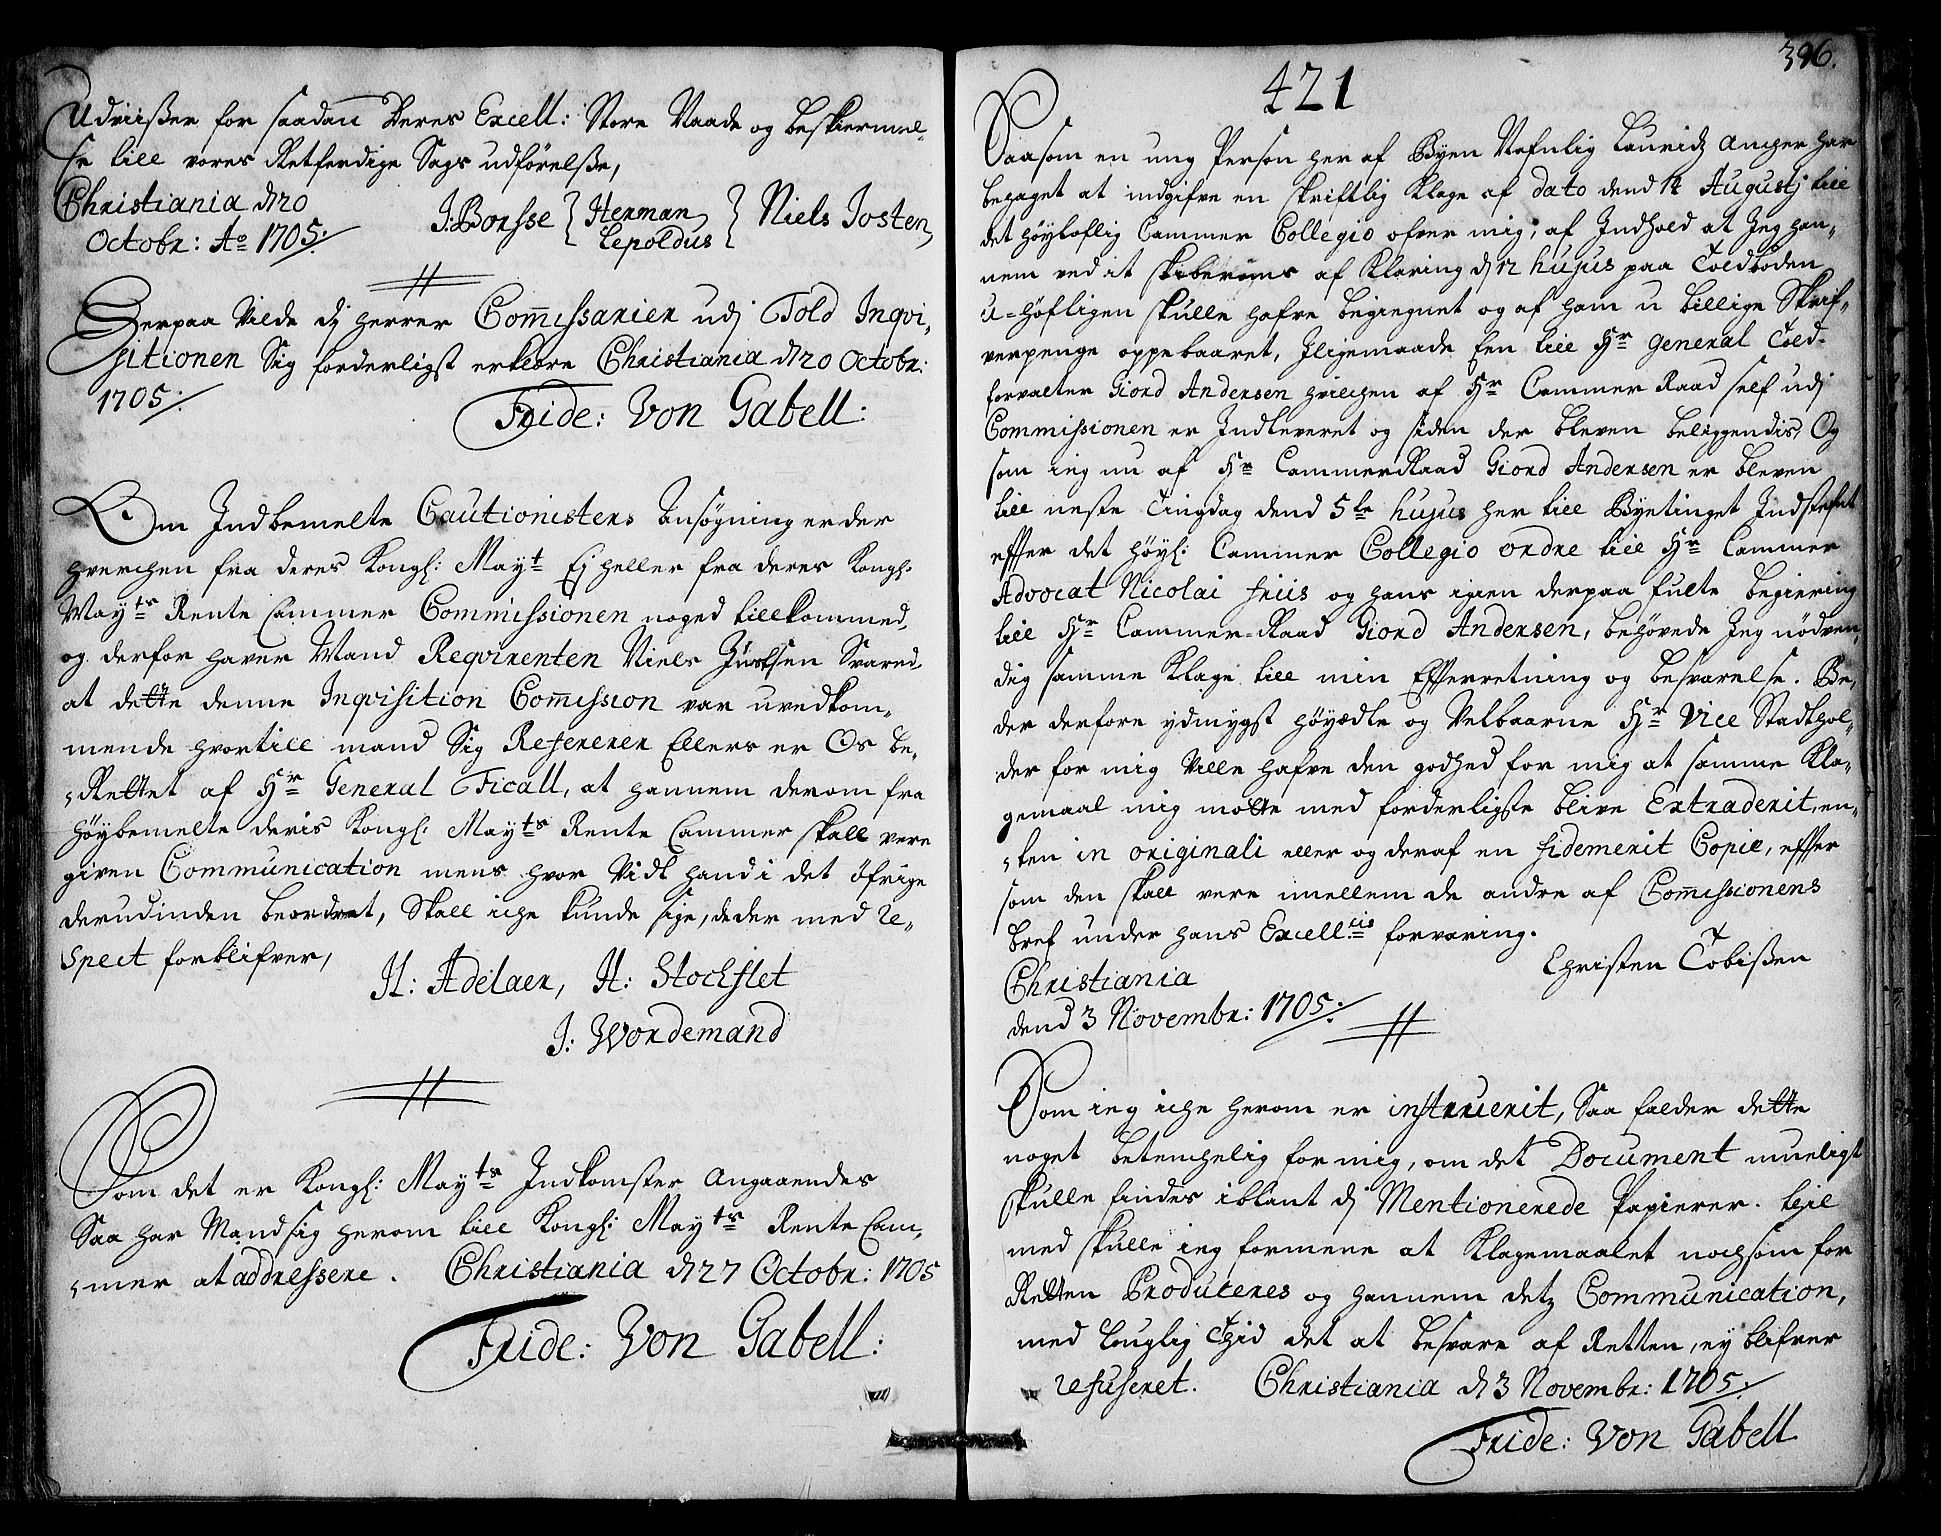 Udviißer for saadan Deres Excell: Store Naade og beskiermel-
se till vores Retferdige Sags udförelße,
Christiania d 20
Octobr: Ao 1705:/
J: Borsse } Herman Lepoldus } Niels Josten,
Herpaa Vilde dj herrer Comissarier udj Told Inqvi,
sitionen Sig forderligst erklære Christiania d 20 Octobr:
1705:/
Fride: Von Gabell:
Om Indbemelte Cautionisters Ansögning er der
hverchen fra deres Kongl: Mayt Ej heller fra deres Kongl:
Mayts Rente Cammer Commissionen noged tillkommed,
og derfor haver Mand Reqvirenten Niels Justsen Svared,
at dette denne Inqvisition Comission var uvedkom,
mende hvortill mand Sig Refererer Ellers er Os be,
Rettet af Hr General Ficall, at hannem derom fra
höybemelte deris Kongl: Mayts Rente Cammer skall vere
given Communication mens hvor Vidt hand i det öfrige
derudinden beordret, Skall iche kunde sige, de der med re,
spect forblifver,
H: Adelaer, H: Stochflet
J: Wordemand
Som det er Kongl: Mayts Indkomster Angaaendes
Saa har Mand sig herom till Kongl: Mayts Rente Cam,
mer at addressere. Christiania d 27 Octobr: 1705
Fride: Von Gabell:
396.
421
Saasom en ung Person her af Byen Nafnlig Lauridz Ancher har
behaget at indgifve en skriftlig Klage af dato dend 14 Augustj till
det höyloflig Cammer Collegio ofver mig, af Indhold at Jeg han,
nem ved it af Klaring d 12 hujus paa Toldboden
u-höfligen skulle hafve begiegnet og af ham u billige Skrif,
verpenge oppebaaret, Iligemaade Een till Hr General Told-
forvalter Giord Andersen hvilchen af Hr Cammer Raad self udj
Commissionen er Indleveret og siden der bleven beliggendis, Og
som ieg nu af Hr CammerRaad Giord Andersen er bleven
till neste Tingdag dend 5te hujus her till Byetinget Indstefnt
effter det höyl: Cammer Collegio ordre till Hr Cammer
Advocat Nicolai friis og hans igien derpaa fulte begiering
till Hr Cammer-Raad Giord Andersen, behövede Jeg nödven,
dig samme Klage till min Efferretning og besvarelse. Be,
der derfore ydmygst höyædle og Velbaarne Hr Vice Stadthol,
der for mig Ville hafve den godhed for mig at samme Kla,
gemaal mig motte med forderligste blive Extraderit, en,
ten in originali eller og deraf en fidemerit Copie, effter
som den skall vere imellem de andre af Comissionens
bref under hans Excelltis forvaring.
Christen Tobißen
Christiania
dend 3 Novembr: 1705:/
Som ieg iche herom er instruerit, Saa falder dette
noget betenchelig for mig, om det Document mueligt
skulle findes iblant dj Mentionerede Papierer. thil
med skulle ieg formene at Klagemaalet nochsom for
Retten Produceres og hannem detz Communication,
med lauglig Thid det at besvare af Retten, ey blifver
refuseret. Christiania d 3 Novembr: 1705:/
Fride: Von Gabell